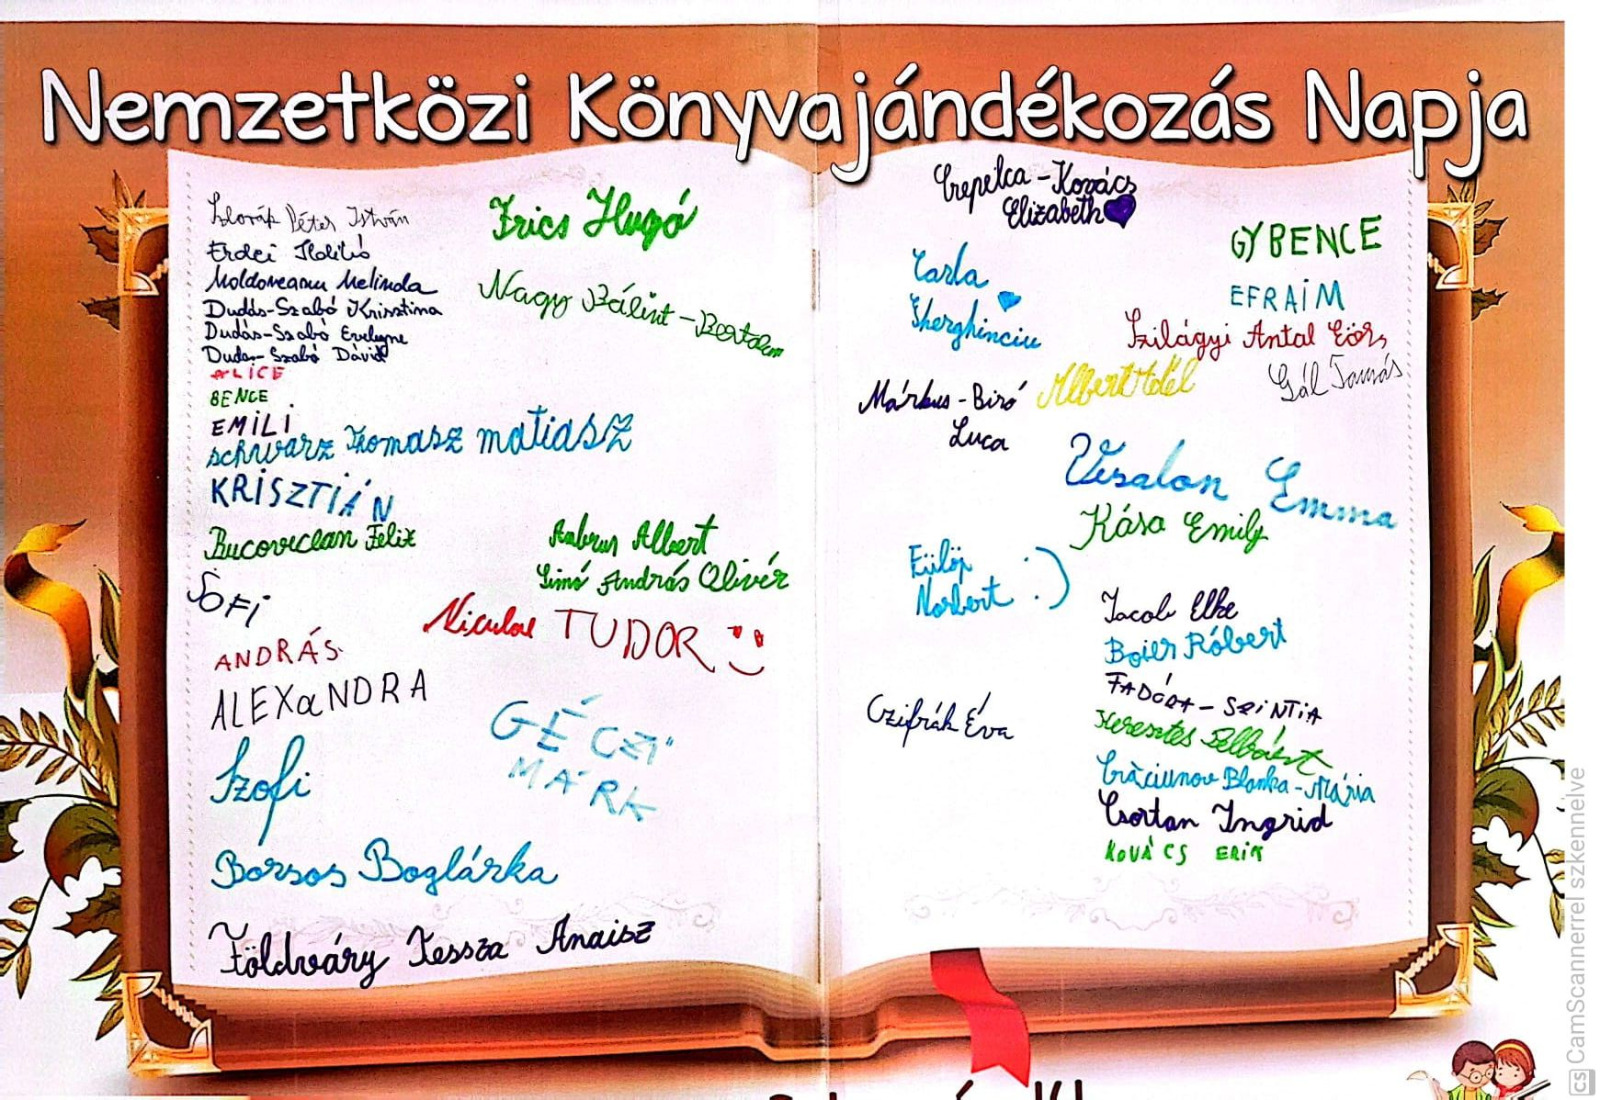 Nemzetközi Könyvajándékozás Napja
Szlovák Péter István
Erdei Ildikó
Moldoveanu Melinda
Dudás-Szabó Krisztina
Dudás-Szabó Evelyne
Dudas-Szabó Dávid
ALICE
BENCE
EMILI
schwarz Thomasz matiasz
KRISZTIÁN
Bucovicean Felix
SOFi
ANDRÁS
ALEXaNDRA
Szofi
Borsos Boglárka
Földváry Tessza Anaisz
Frics Hugó
Nagy Bálint-Bertalan
Ambrus Albert
Simó András Olivér
Niculae TUDOR
GÉCZI
MÁRK
Crepelca-Kovács
Elizabeth
Carla
Gherghinciu
Márkus-Biró
Luca
Albert Adél
GY BENCE
EFRAiM
Szilágyi Antal Eörs
Gál Tamás
Vesalon Emma
Kása Emily
Fülöp
Norbert :)
Czifrák Éva
Iacob Elke
Boier Róbert
FADÓRA-SZiNTiA
Keresztes
Crăciunov Blanka-Mária
Csortan Ingrid
KOVÁCS ERIK
CS CamScannerrel szkennelve